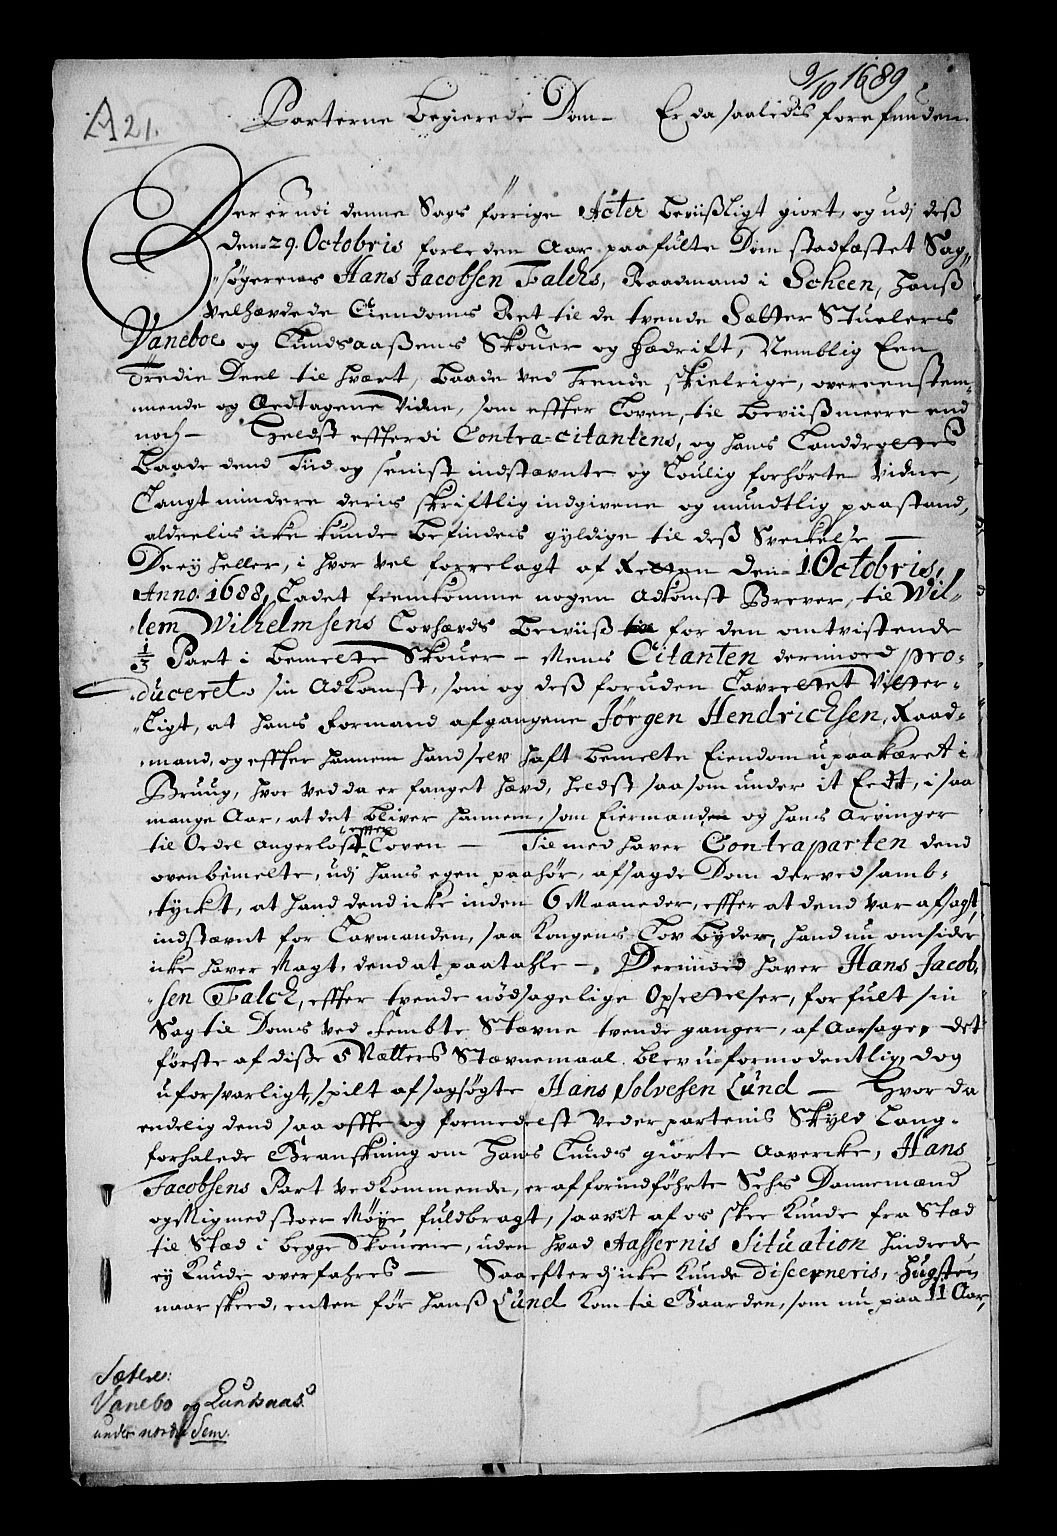 9/10 1689
A21.
Parterne begierede Dom - Er da saaledis forefunden
Der er udi denne Sags förrige Acter bevißligt giort, og udj deß
den 29. Octobris forleden Aar paafulte Dom stadfæstet Sag-
søgerens Hans Jacobsen Falchs, Raadmand i Scheen, hanß
velhævdede Eiendoms Ret til de tvende Sætter Stuelers
Vaneboe og Lundsaaßens Skouer og Fædrift, Nemblig Een
Tredie Deel til hvert, baade ved Trende skielrige, overeenstem-
mende og Aedtagene Vidne, som effter Loven, til beviiß meere end
noch - Heldst effterdi Contra-citantens, og hans Landdrottes
baade dend Tiid og senist indstævnte og Louglig forhørte Vidne,
Langt mindere deris skriftlig indgivene og mundtlig paastand,
aldeelis icke kunde befindes gyldige til deß Sveckelse -
De ey heller, i hvor vel forrelagt af Retten den 1 Octobris,
Anno: 1688, Ladet fremkomme nogen Adkomst Brever, til Wil-
lem Wilhelmsens Lovhævds beviiß for den omtvistende
1/3 Part i bemelte Skouer - Mens Citanten derimoed pro-
duceret sin Adkomst, som og deß foruden Lavrettet vitter-
ligt, at hans formand afgangene Jörgen Hendrichsen, Raad-
mand, og effter hannem hand selv haft bemelte Eiendom upaakæret i
Bruug, hvor ved da er fanget hævd, heldst saasom under it Eedt, i saa
mange Aar, at det bliver hannem, som Eiermanden og hans Arvinger
til Ordel angerlöst effter Loven - Til med haver Contraparten dend
ovenbemelte, udj hans egen paahör, afsagde Dom derved samb-
tyckt, at hand dend icke inden 6 Maaneder, effter at dend var afsagt,
indstævnt for Lavmanden, saa Kongens Lov byder, hand nu omsider
icke haver Magt, dend at paatahle -. Derimoed haver Hans Jacob-
sen Falch, effter tvende nödsagelige Opsettelser, forfult sin
Sag til Doms ved fembte Stævne tvende ganger, af Aarsage, det
förste af diße 5 Nætters Stævnemaal blev uformodentlig, dog
uforsvarligt, spilt af sagsögte Hans Solvesen Lund - Hvor da
endelig dend saa offte og formedelst Vederpartens Skyld Lang-
forhalede Granskning om Hans Lunds giorte Aavercke, Hans
Jacobsens Part vedkommende, er af forindføhrte Sehs Dannemænd
og Mig med stoer Møye fuldbragt, saavit af os skee kunde fra Stæd
til Stæd i begge Skouene, uden hvad Aassernis Situation hindrede
ey kunde overfahres - Saa efterdj icke kunde discerneris, Hugsten
naar skeed, enten før Hanß Lund kom til Gaarden, som nu paa 11 Aar,
Sætere:
Vanebo og Lundsaas
under nordre Sem.